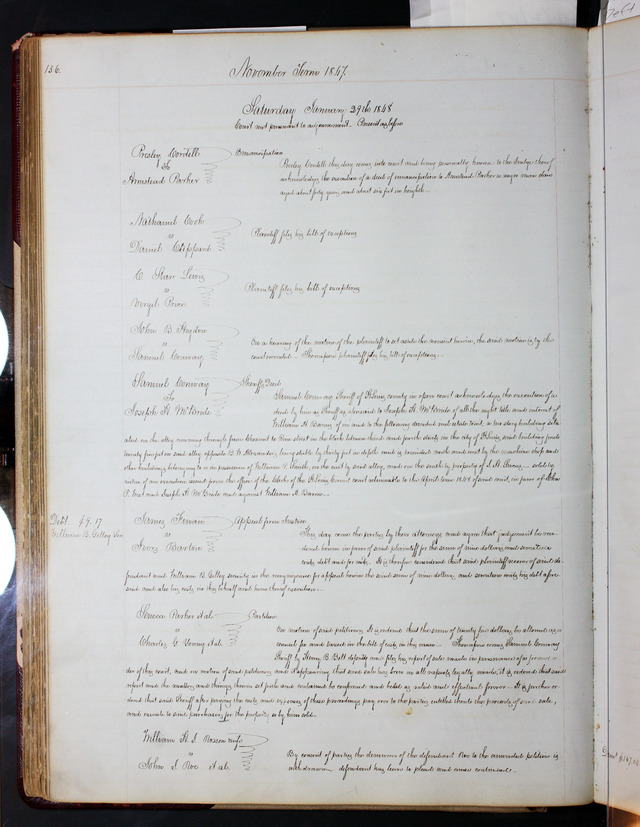 156.
November Term 1847.
Saturday January 29th 1848
Court met pursuant to adjournment. Present as before
Presley Cordell
to
Armstead Parker
Emancipation
Presley Cordell this day comes into court and being personally known to the court
acknowledges the execution of a deed of emancipation to Armstead Parker a man slave
aged about forty years and about six feet in height.
Nathaniel Cook
vs
Daniel Clippard
Plaintiff files his bill of exceptions
C
vs
Virgil
Plaintiff files his bill of exceptions
John B.
vs
Samuel Conway
On a hearing of the motion of the plaintiff to set aside the nonsuit herein, the said motion is by the
court overruled. Thereupon plaintiff files his bill of exceptions.
Samuel Conway
to
Joseph H. McBride
Sheriff's Deed
Samuel Conway Sheriff of St Louis county in open court acknowledges the execution of a
deed by him as Sheriff as aforesaid to Joseph H. McBride of all the right title and interest of
William A. of in and to the following described real estate to wit, a two story building
situated on the alley running through from to Pine street in the block between third and fourth streets in the city of St Louis, said building
twenty feet on said alley opposite B. W. Alexander's livery stable by thirty feet in depth and is bounded north and west by the machine shop and
other buildings belonging to or in possession of William on the east by said alley, and on the south by property of sold by
virtue of an execution issued from the office of the Clerk of the St Louis Circuit court returnable to the April term 1848 of said court, in favor of
and Joseph H. McBride and against William A.
Debt $9.17
William B. Gilley Sec
James
vs
Barton
Appeal from Justice
This day come the parties by their attorneys and agree that judgment be rendered
herein in favor of said plaintiff for the sum of nine dollars and seventeen
cents debt and for costs. It is therefore considered that said plaintiff recover of said defendant
and William B. Gilley security in the recognizance for appeal herein the said sum of nine dollars and seventeen cents his debt aforesaid
and also his costs in this behalf and have thereof execution.
Seneca Parker et als
vs
Charles G. et als
Partition
On motion of said petitioners It is ordered that the sum of twenty five dollars be allowed as
counsel fee and taxed in the bill of costs in this cause. Thereupon comes Samuel Conway
Sheriff by Henry B. Belt deputy and files his report of sale made in pursuance of a former
order of this court, and on motion of said petitioners and it appearing that said sale has been in all respects legally made, it is ordered that said
report and the matters and things therein set forth and contained be confirmed and held as valid and effectual forever. It is further
ordered that said Sheriff after paying the costs and expenses of these proceedings pay over to the parties entitled thereto the proceeds of said sale,
and execute to said purchasers for the property so by them sold.
William H. J. wife
vs
John J. Roe et al.
By consent of parties the demurrer of the defendant Roe to the amended petition is
withdrawn defendant has leave to plead and cause continued.